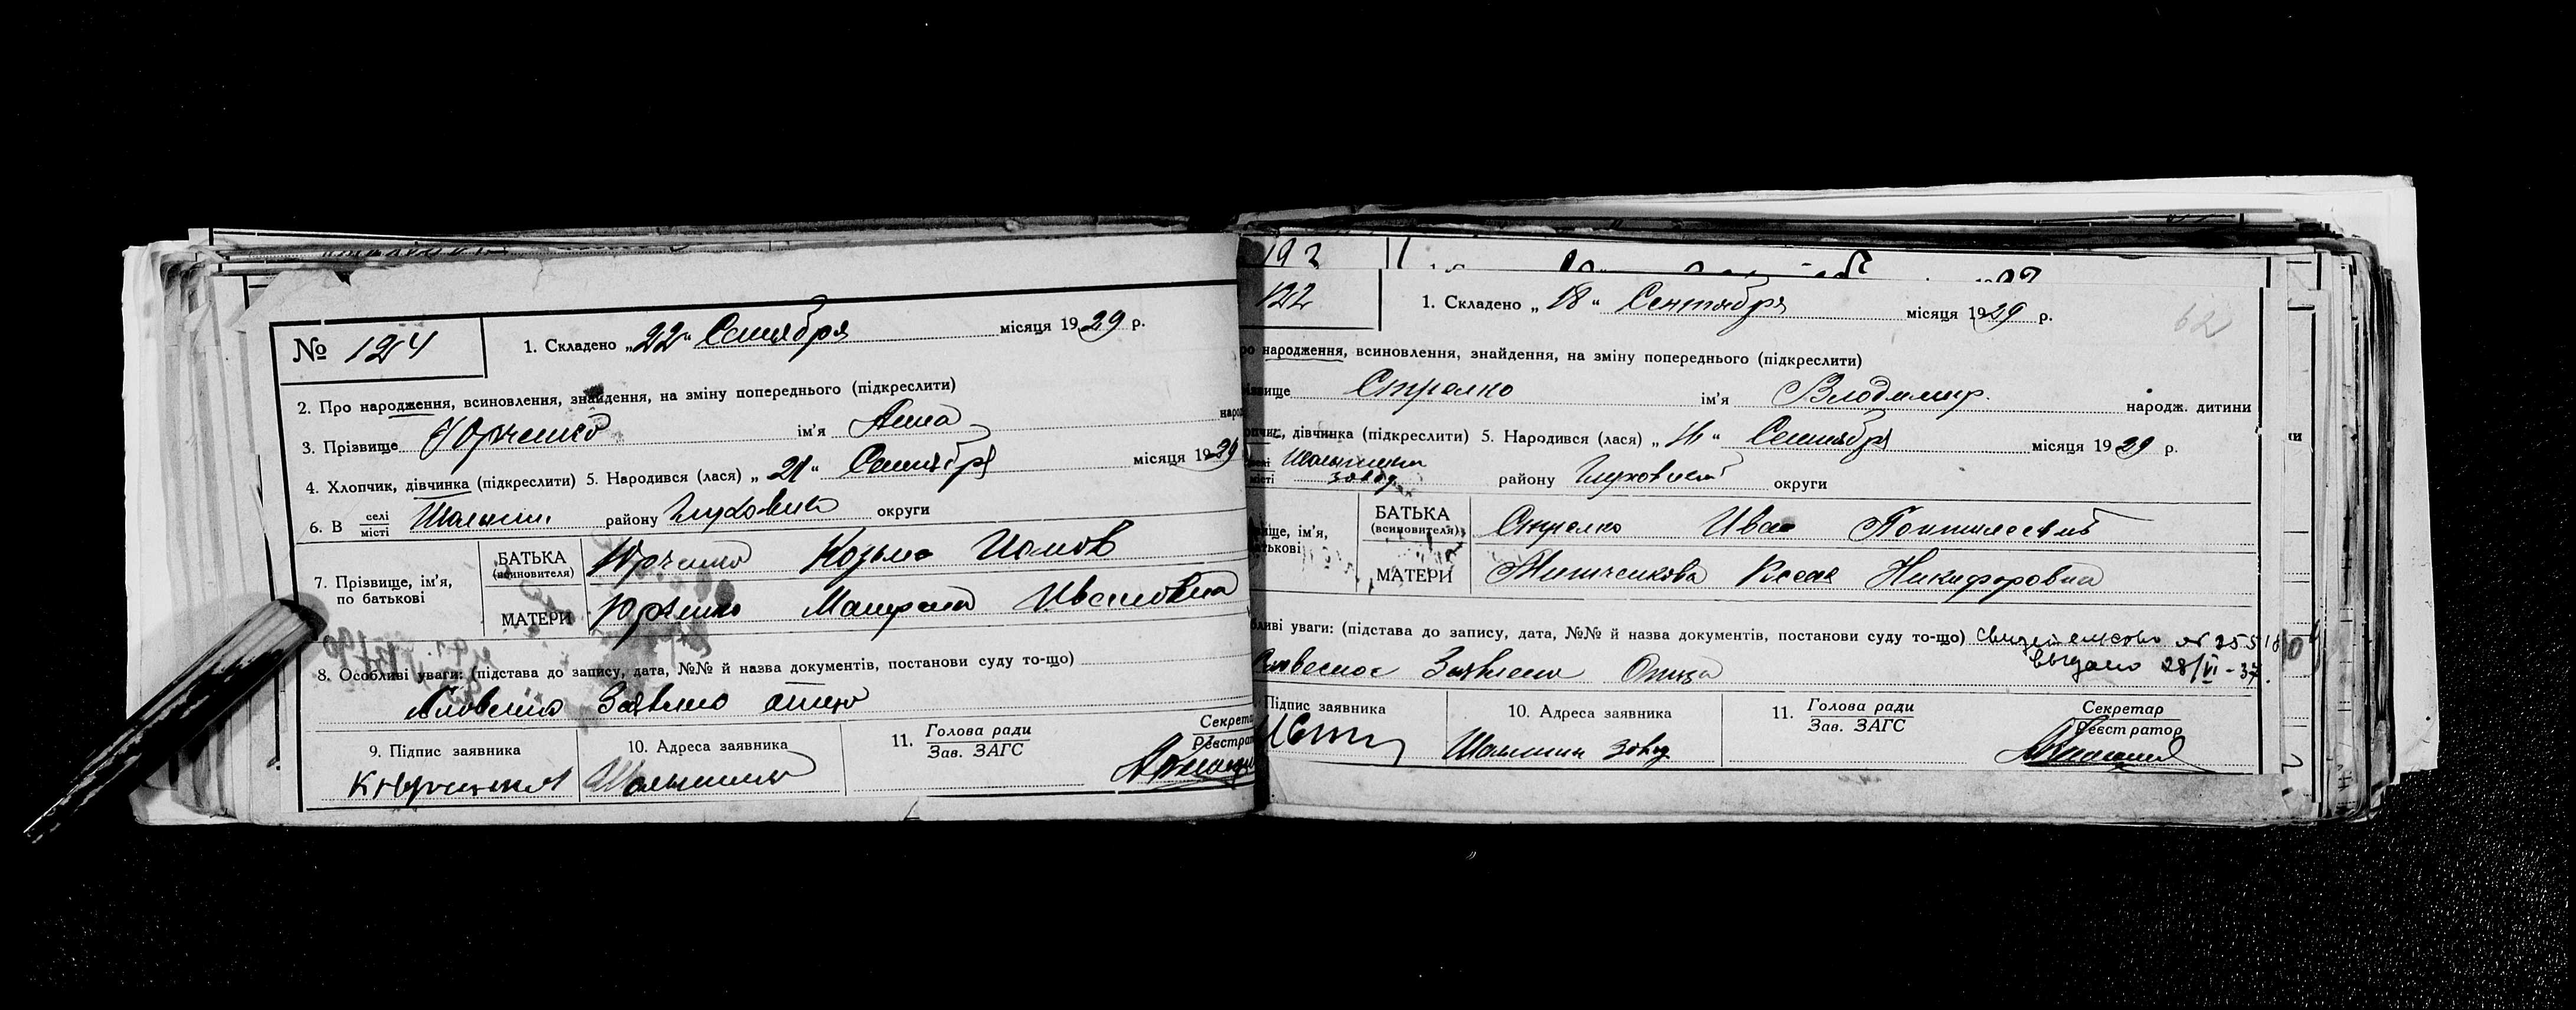 № 124
1. Складено „22“ Сентября місяця 1929 р.
2. Про народження, всиновлення, знайдення, на зміну попереднього (підкреслити)
3. Прізвище Юрченко ім'я Анна народ
4. Хлопчик, дівчинка (підкреслити) 5. Народився (лася) „21“ Сентября місяця 1929
6. В селі місті Шалыгин району Глуховск округи
7. Прізвище, ім'я, по батькові
БАТЬКА (всиновителя) Юрченко Козьма
МАТЕРИ Юрченко Ивановна
8. Особливі уваги: (підстава до запису, дата, №№ й назва документів, постанови суду то-що)
9. Підпис заявника
10. Адреса заявника
11. Голова ради Зав. ЗАГС
Секрета
Реєстрат
Шалыгин
193
122
1. Складено „18“ Сентября місяця 1929 р.
62
ро народження, всиновлення, знайдення, на зміну попереднього (підкреслити)
ізвище Стрелко ім'я Владимир народж. дитини
опчик, дівчинка (підкреслити) 5. Народився (лася) Сентября місяця 1929 р.
селі місті завод району Глуховский округи
віще, ім'я, атькові
БАТЬКА (всиновителя) Стрелко Иван
МАТЕРИ Никифоровна
бливі уваги: (підстава до запису, дата, №№ й назва документів, постанови суду то-що) Свидетельство №
выдано 28/VI-37.
Словесное Заявление Отца
Підпис заявника
10. Адреса заявника
11. Голова ради Зав. ЗАГС
Секретар
Реєстратор
завод